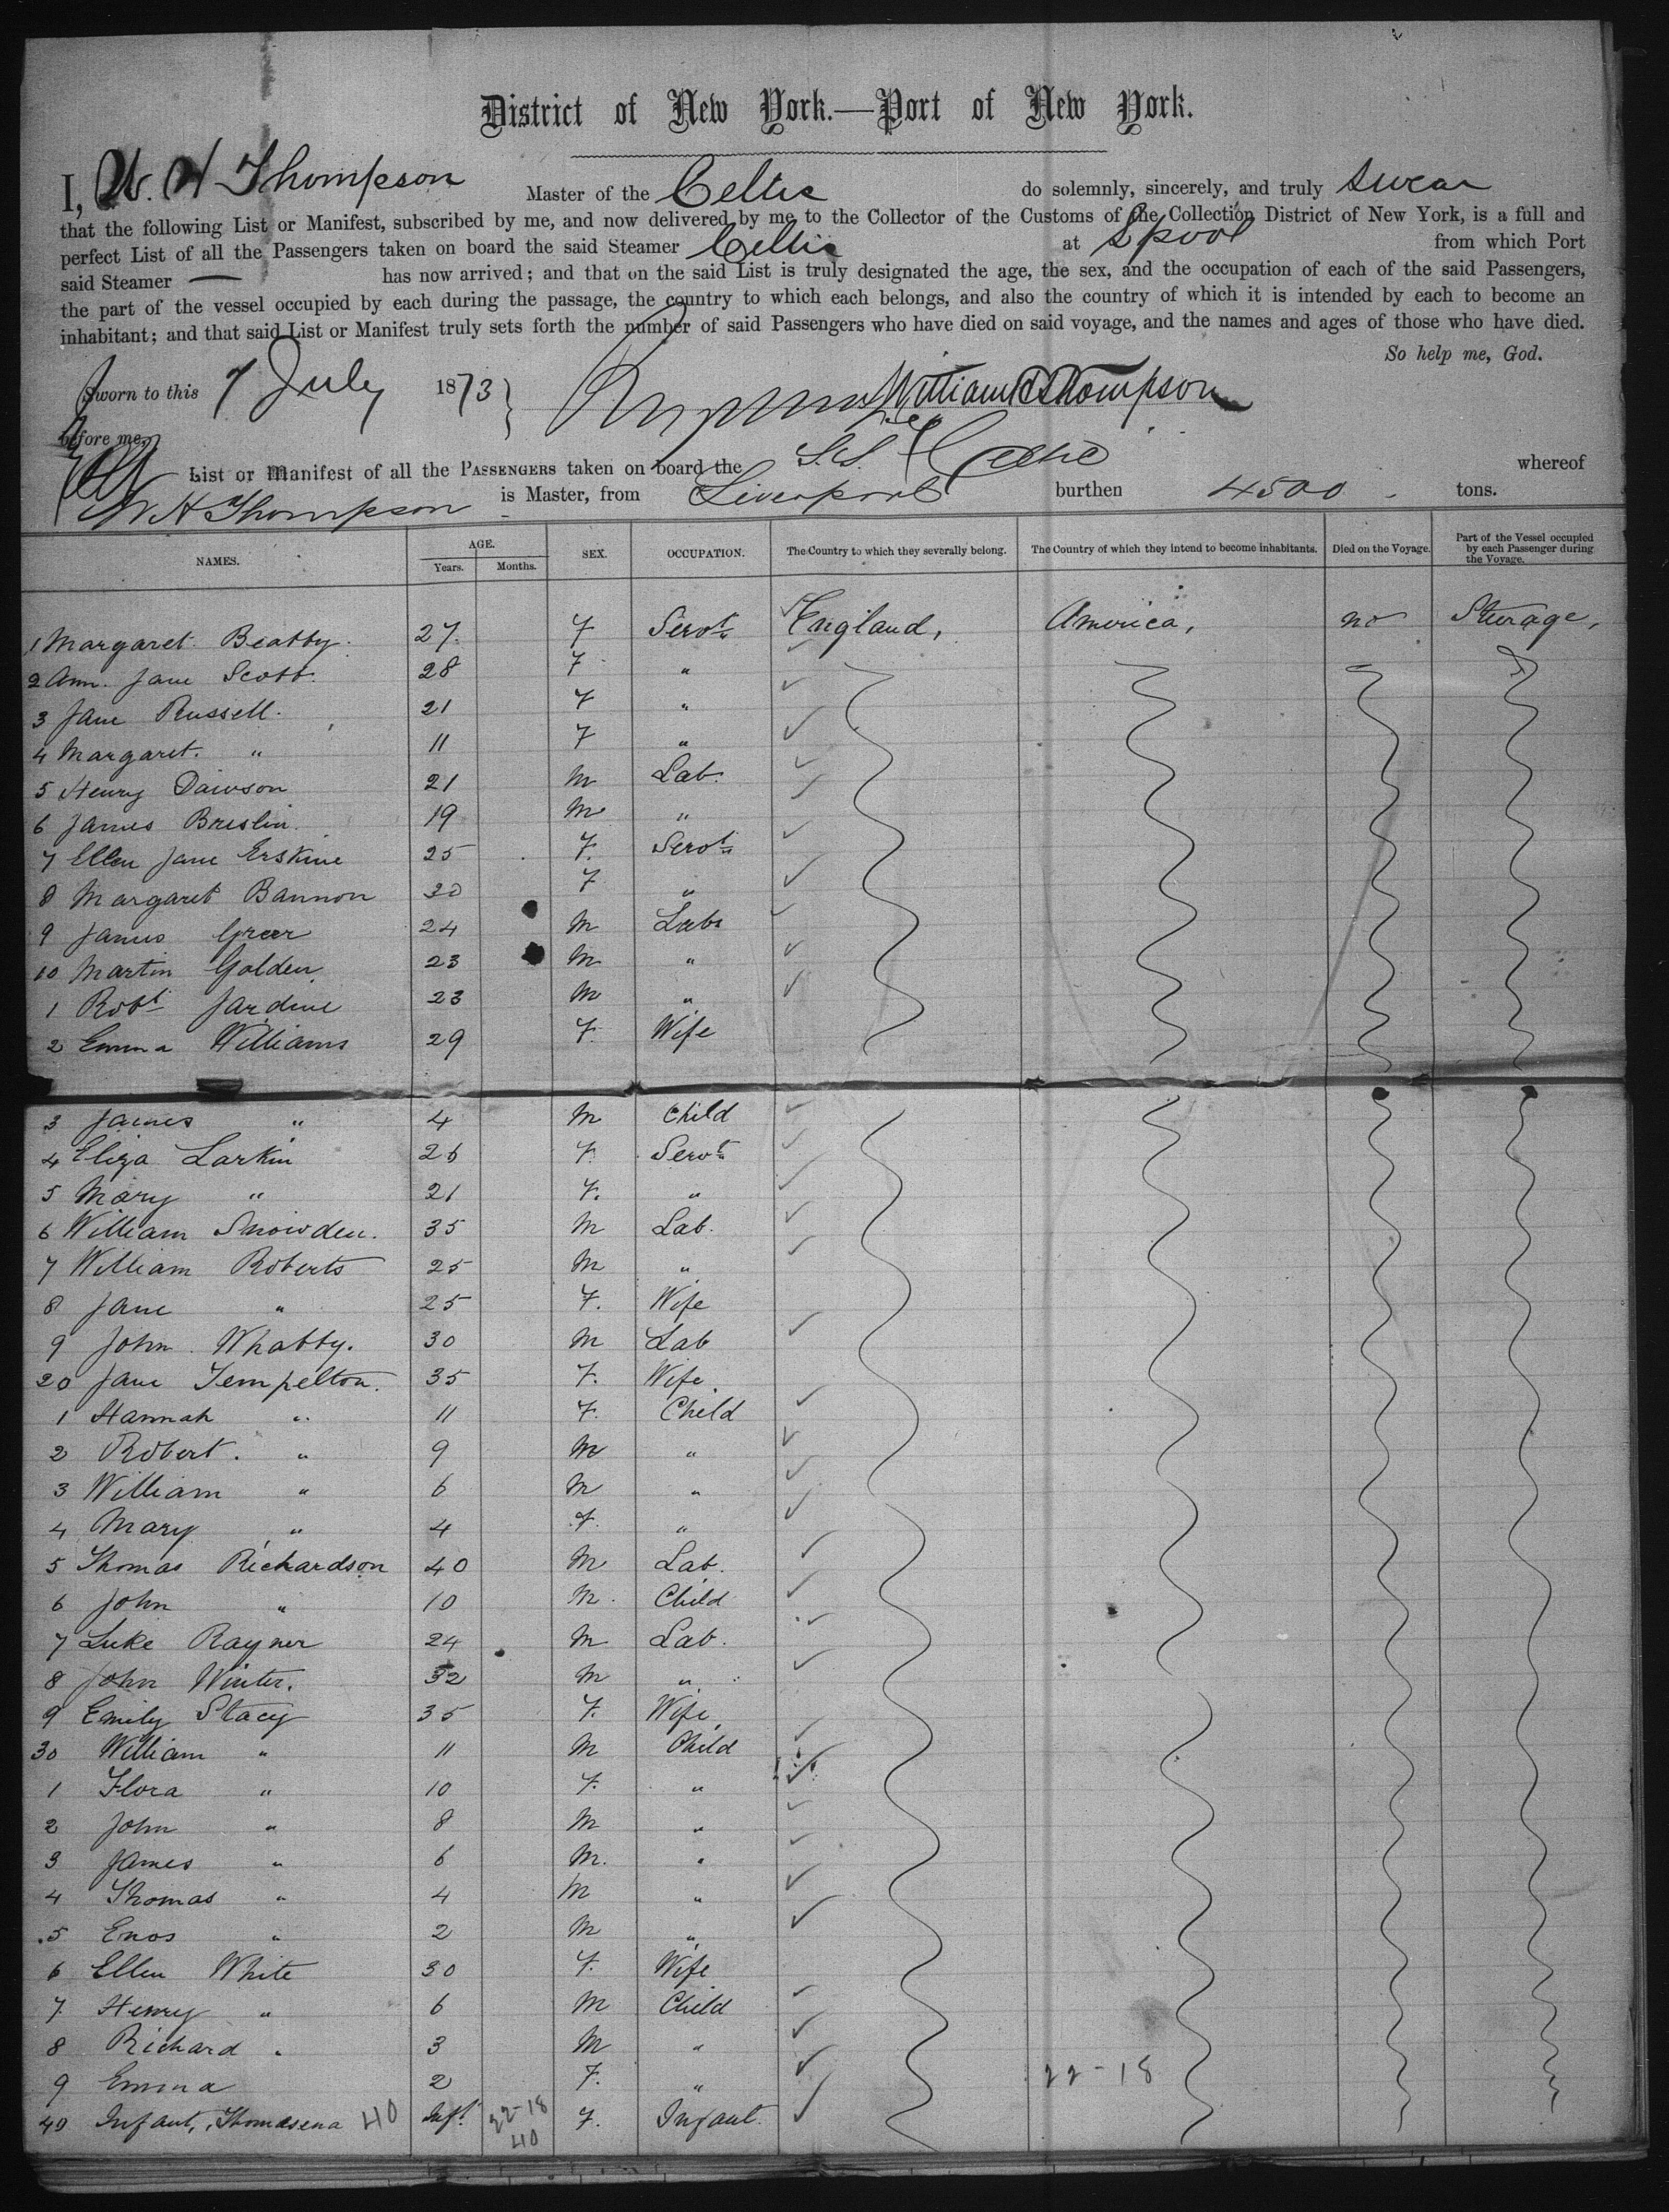 District of New York.—Port of New York.
I, W. H Thompson Master of the Celtic do solemnly, sincerely, and truly swear
that the following List or Manifest, subscribed by me, and now delivered by me to the Collector of the Customs of the Collection District of New York, is a full and
perfect List of all the Passengers taken on board the said Steamer Celtic at Lpool from which Port
said Steamer — has now arrived; and that on the said List is truly designated the age, the sex, and the occupation of each of the said Passengers,
the part of the vessel occupied by each during the passage, the country to which each belongs, and also the country of which it is intended by each to become an
inhabitant; and that said List or Manifest truly sets forth the number of said Passengers who have died on said voyage, and the names and ages of those who have died.
So help me, God.
Sworn to this 7 July 1873 } William H Thompson
before me,
List or Manifest of all the PASSENGERS taken on board the S.S. Celtic whereof
W H Thompson is Master, from Liverpool burthen 4500 tons.
NAMES. AGE. Years. Months. SEX. OCCUPATION. The Country to which they severally belong. The Country of which they intend to become inhabitants. Died on the Voyage. Part of the Vessel occupied by each Passenger during the Voyage.
1 Margaret Beatty. 27. F Servt England, America, no Steerage,
2 Ann Jane Scott. 28 F "
3 Jane Russell. 21 F "
4 Margaret. " 11 F "
5 Henry Dawson 21 M Lab.
6 James Breslin. 19 M "
7 Ellen Jane Erskine 25 F. Servt
8 Margaret Bannon 30 F "
9 James Greer 24 M Labr
10 Martin Golden 23 M "
1 Robt Jardine 23 M "
2 Emma Williams 29 F. Wife
3 James " 4 M Child
4 Eliza Larkin 26 F. Servt
5 Mary " 21 F. "
6 William Snowden. 35 M Lab.
7 William Roberts 25 M "
8 Jane " 25 F. Wife
9 John Whatty. 30 M Lab
20 Jane Tempelton. 35 F. Wife
1 Hannah " 11 F. Child
2 Robert. " 9 M "
3 William " 6 M "
4 Mary " 4 F. "
5 Thomas Richardson 40 M Lab.
6 John " 10 M. Child
7 Luke Rayner 24 M Lab.
8 John Winter. 32 M "
9 Emily Stacey 35 F. Wife
30 William " 11 M Child
1 Flora " 10 F. "
2 John " 8 M "
3 James " 6 M. "
4 Thomas " 4 M "
5 Enos " 2 M "
6 Ellen White 30 F. Wife
7 Henry " 6 M Child
8 Richard " 3 M "
9 Emma 2 F. " 22-18
40 Infant, Thomasena 40 Inft. 22-18 40 F. Infant.